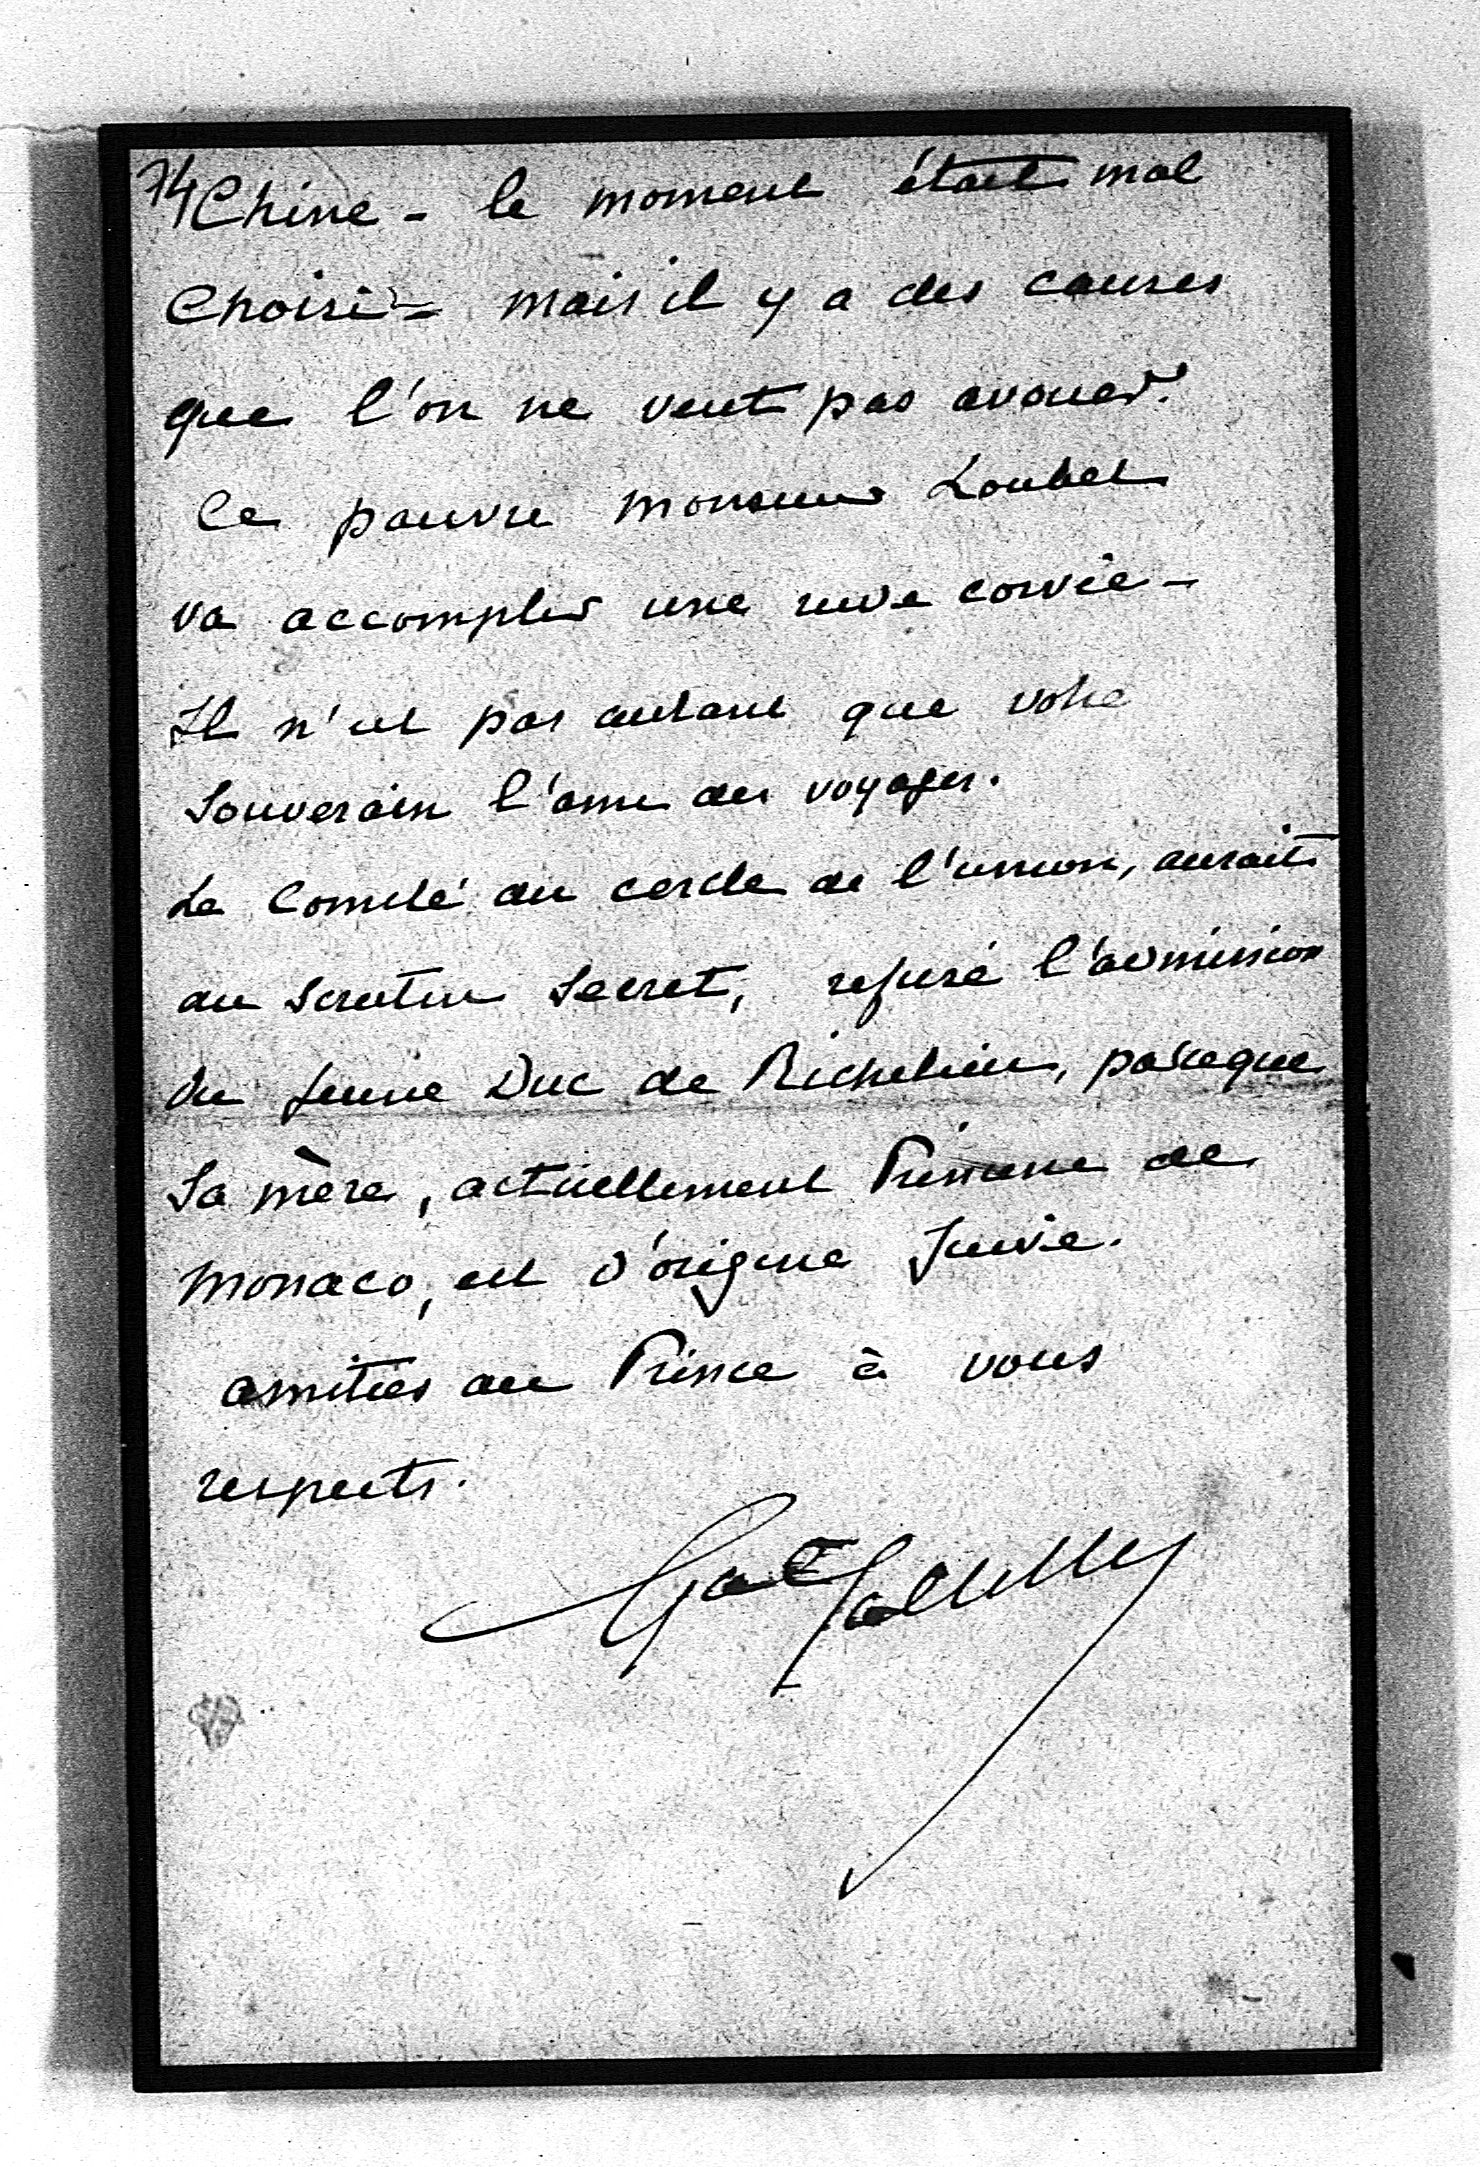 74 Chine - le moment était mal
Choisi - mais il y a des causes
que l'on ne veut pas avouer.
Ce pauvre Monsieur Loubet
va accomplir une rude corvée -
Il n'est pas autant que votre
Souverain l'ami des voyages.
Le Comité du cercle de l'union, aurait
au scrutin secret, refusé l'admission
du Jeune Duc de Richelieu, parceque
sa mère, actuellement Princesse de
Monaco, est d'origine Juive.
amitiés au Prince à vous
respects.
Gal